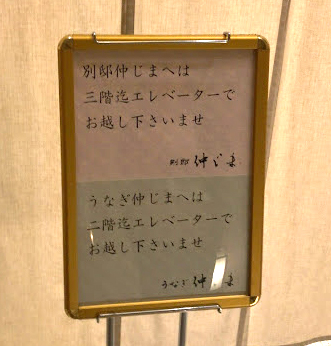 別邸仲じまへは
三階迄エレベーターで
お越し下さいませ
別邸 仲じま
うなぎ仲じまへは
二階迄エレベーターで
お越し下さいませ
うなぎ 仲じま